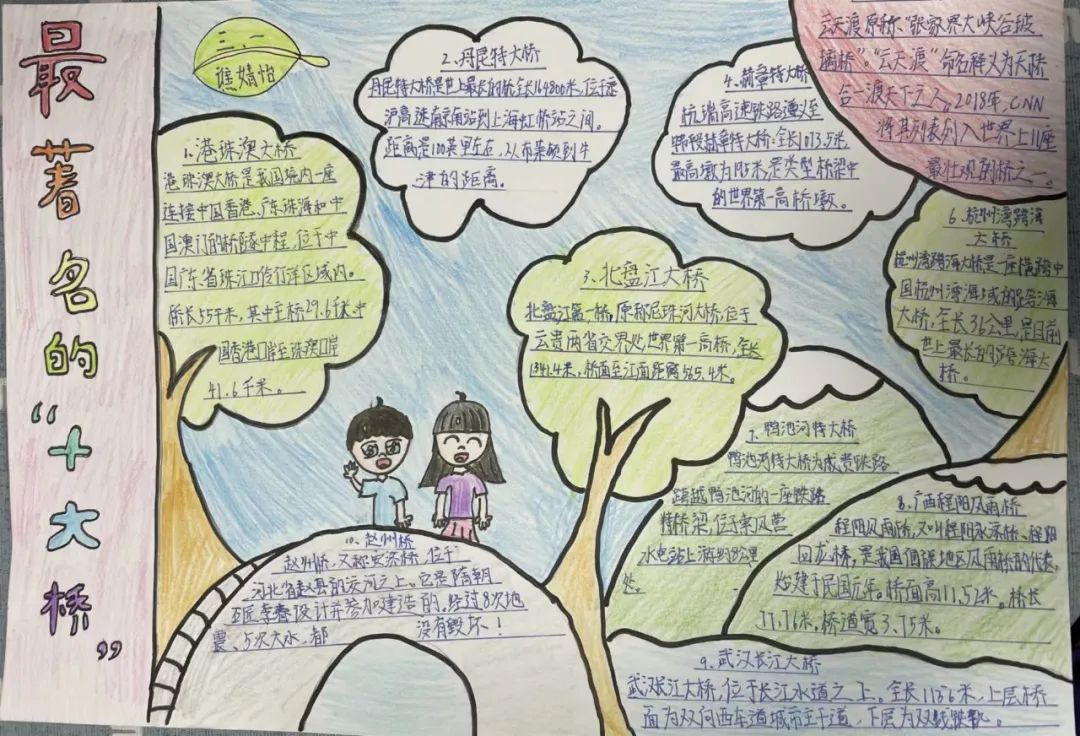 最著名的“十大桥”
三、一
谯婧怡
1、港珠澳大桥
港珠澳大桥是我国境内一座
连接中国香港、广东珠海和中
国澳门的桥隧中程,位于中
国广东省珠江口伶仃洋区域内。
桥长55千米,其中主桥29.6千米、中
国香港口岸至珠澳口岸
41.6千米。
2、丹尼特大桥
丹尼特大桥是世上最长的桥,全长164800米,位于
沪高铁南京南站到上海虹桥站之间。
距离是100英里左右,从布莱顿到牛
津的距离。
3、北盘江大桥
北盘江第一桥,原称尼珠河大桥,位于
云贵两省交界处,世界第一高桥,全长
1341.4米,桥面至江面距离565.4米。
4、赫章特大桥
杭瑞高速铁路遵义至
毕节段赫章特大桥,全长1013.5米,
最高墩为195米,是类型桥梁中
的世界第一高桥墩。
云天渡原称“张家界大峡谷玻
璃桥”。“云天渡”命名释义为天降
合一渡天下之人,2018年,CNN
将其列表列入世界上11座
最壮观的桥之一。
6、杭州湾跨海
大桥
杭州湾跨海大桥是一座横跨中
国杭州湾海域的跨海
大桥,全长36公里,是目前
世上最长的跨海大
桥。
7、鸭池河特大桥
鸭池河特大桥为成贵铁路
跨越鸭池河的一座铁路
特桥梁,位于东风营
水电站上游约8公里
处。
8、广西程阳风雨桥
程阳风雨桥,又叫程阳永济桥、程阳
回龙桥,是我国侗寨地区风雨桥的代表,
始建于民国元年。桥面高11.52米。桥长
77.76米,桥道宽3.75米。
9、武汉长江大桥
武汉长江大桥,位于长江水道之上。全长1156米,上层桥
面为双向四车道城市主干道,下层为双线铁轨。
10、赵州桥
赵州桥,又称安济桥,位于
河北省赵县的洨河之上。它是隋朝
巨匠李春设计并参加建造的,经过8次地
震、5次大水,都没有毁坏!